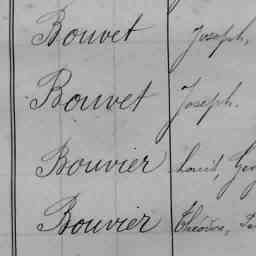 Bouvet Joseph,
Bouvet Joseph.
Bouvier Louis,
Bouvier Théodore,